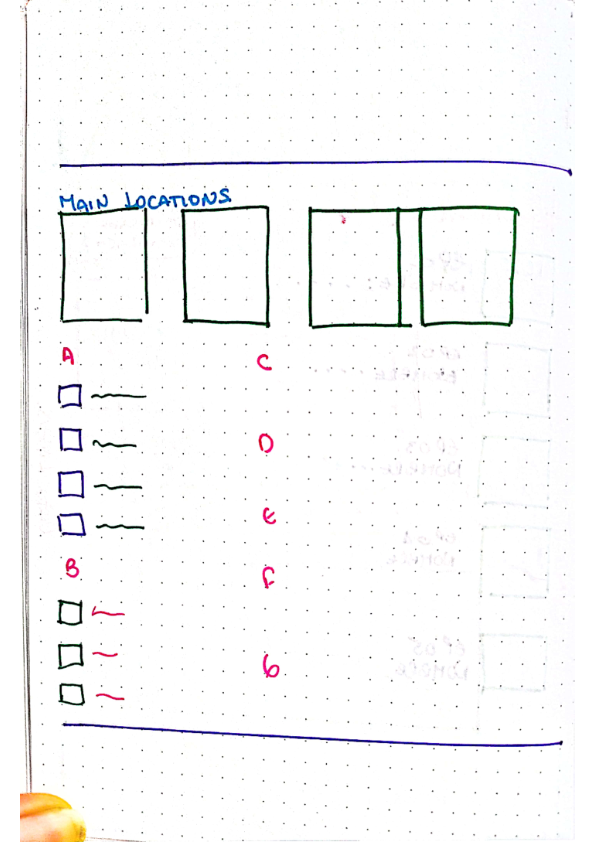 MAIN LOCATIONS
A
B
C
D
E
F
G